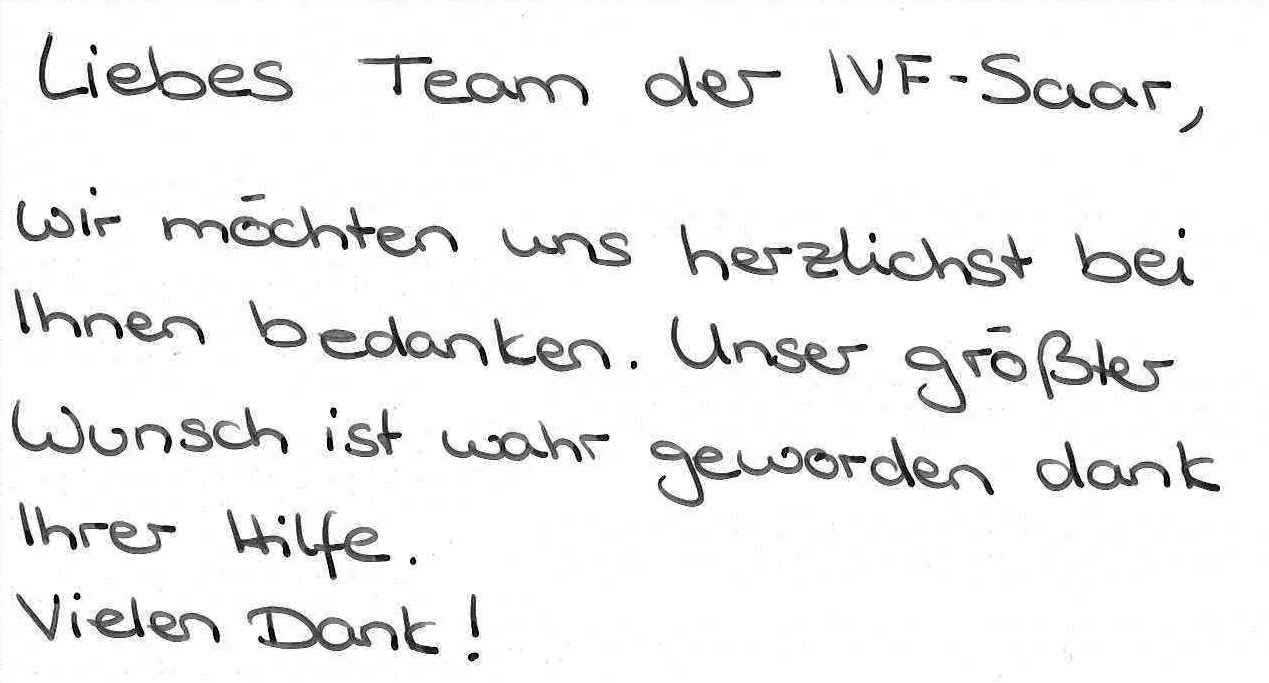 Liebes Team der IVF-Saar,
wir möchten uns herzlichst bei
Ihnen bedanken. Unser größter
Wunsch ist wahr geworden dank
Ihrer Hilfe.
Vielen Dank!